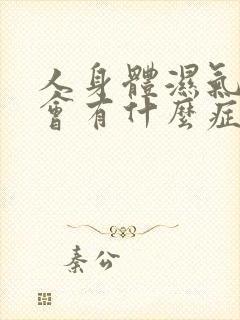 人身體濕氣
會有什麼症
秦公